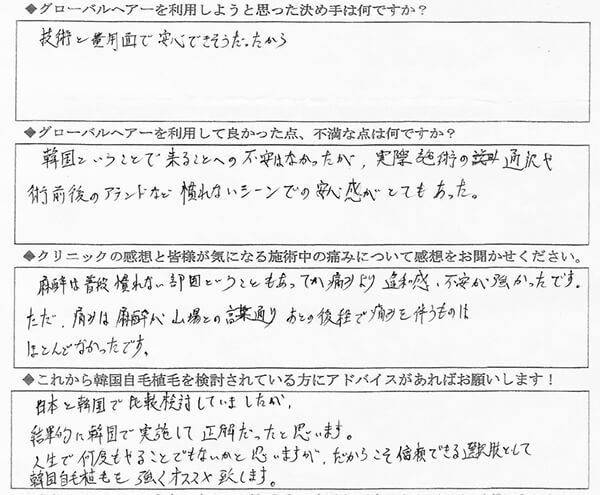 ◆グローバルヘアーを利用しようと思った決め手は何ですか？
技術と費用面で安心できそうだったから
◆グローバルヘアーを利用して良かった点、不満な点は何ですか？
韓国ということで来ることへの不安はなかったが、実際施術の説明 通訳や
術前後のアテンドなど慣れないシーンでの安心感がとてもあった。
◆クリニックの感想と皆様が気になる施術中の痛みについて感想をお聞かせください。
麻酔は普段慣れない部図ということもあってか痛みより違和感、不安が強かったです。
ただ、痛みは麻酔が山場との言葉通りあとの後程で痛みを伴うものは
ほとんどなかったです。
◆これから韓国自毛植毛を検討されている方にアドバイスがあればお願いします！
日本と韓国で比較検討していましたが、
結果的に韓国で実施して正解だったと思います。
人生で何度もやることでもないかと思いますが、だからこそ信頼できる選択肢として
韓国自毛植毛を強くオススメ致します。